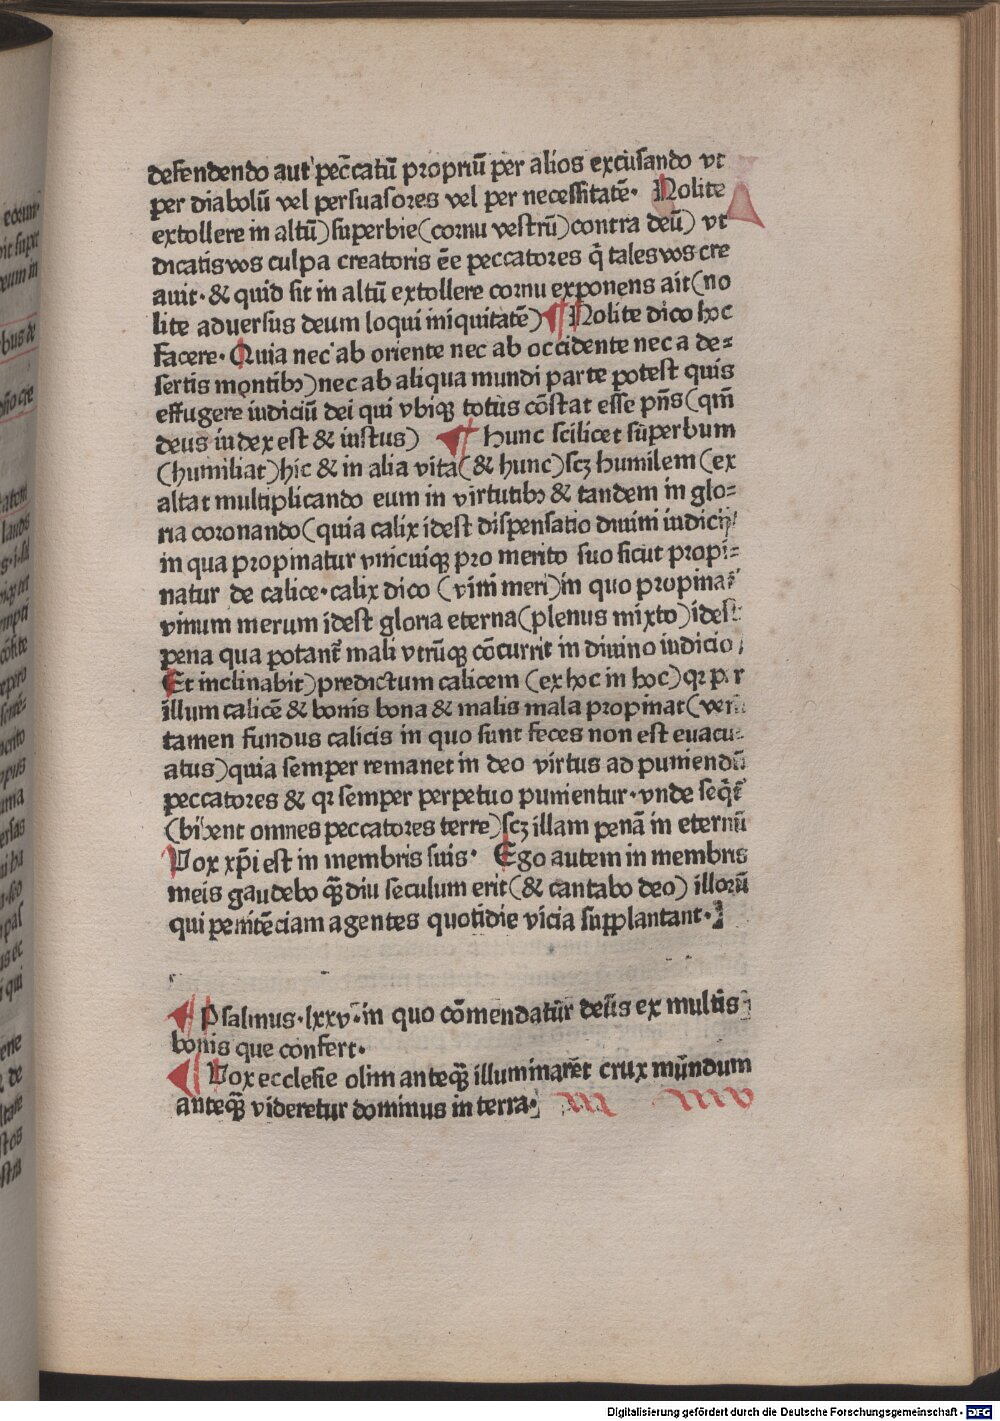 defendendo aut pec̄catū propriū per alios excusando vt
per diabolū vel persuasores vel per necessitatē· Nolite
extollere in altū) superbie (cornu vestrū) contra deū) vt
dicatis vos culpa creatoris ēe peccatores q̄ tales vos cre
auit· & quid sit in altū extollere cornu exponens ait (no
lite aduersus deum loqui iniquitatē) ¶ Nolite dico hoc
facere· Quia nec ab oriente nec ab occidente nec a de=
sertis montibꝫ) nec ab aliqua mundi parte potest quis
effugere iudiciū dei qui vbiqꝫ totus cōstat esse pn̄s (qm̄
deus iudex est & iustus) ¶ hunc scilicet superbum
(humiliat) hic & in alia vita (& hunc) scꝫ humilem (ex
altat multiplicando eum in virtutibꝫ & tandem in glo=
ria coronando (quia calix idest dispensatio diuini iudicij
in qua propinatur vnicuiqꝫ pro merito suo sicut propi=
natur de calice· calix dico (vini meri) in quo propinat᷑
vinum merum idest gloria eterna (plenus mixto) idest
pena qua potant᷑ mali vtrūqꝫ cōcurrit in diuino iudicio
Et inclinabit) predictum calicem (ex hoc in hoc) qꝛ per
illum calicē & bonis bona & malis mala propinat (veru
tamen fundus calicis in quo sunt feces non est euacu=
atus) quia semper remanet in deo virtus ad puniendū
peccatores & qꝛ semper perpetuo punientur· vnde seq̄t᷑
(bibent omnes peccatores terre) scꝫ illam penā in eternū
Vox xp̄i est in membris suis· Ego autem in membris
meis gaudebo qꝫ̄diu seculum erit (& cantabo deo) illorū
qui penitēciam agentes quotidie vicia supplantant·
¶ Psalmus· lxxv· in quo cōmendatur deus ex multis
bonis que confert·
¶ Vox ecclesie olim anteqꝫ̄ illuminaret crux mūndum
anteqꝫ̄ videretur dominus in terra·
Digitalisierung gefördert durch die Deutsche Forschungsgemeinschaft - DFG